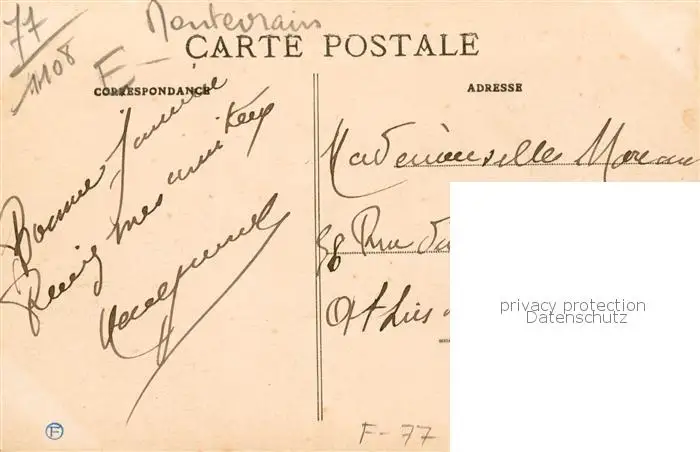 77
1108
F - Montevrain
CARTE POSTALE
CORRESPONDANCE
ADRESSE
Bonne Année
mes amitiés
Mademoiselle Moreau
58 Rue
Athis
privacy protection
Datenschutz
F
F-77